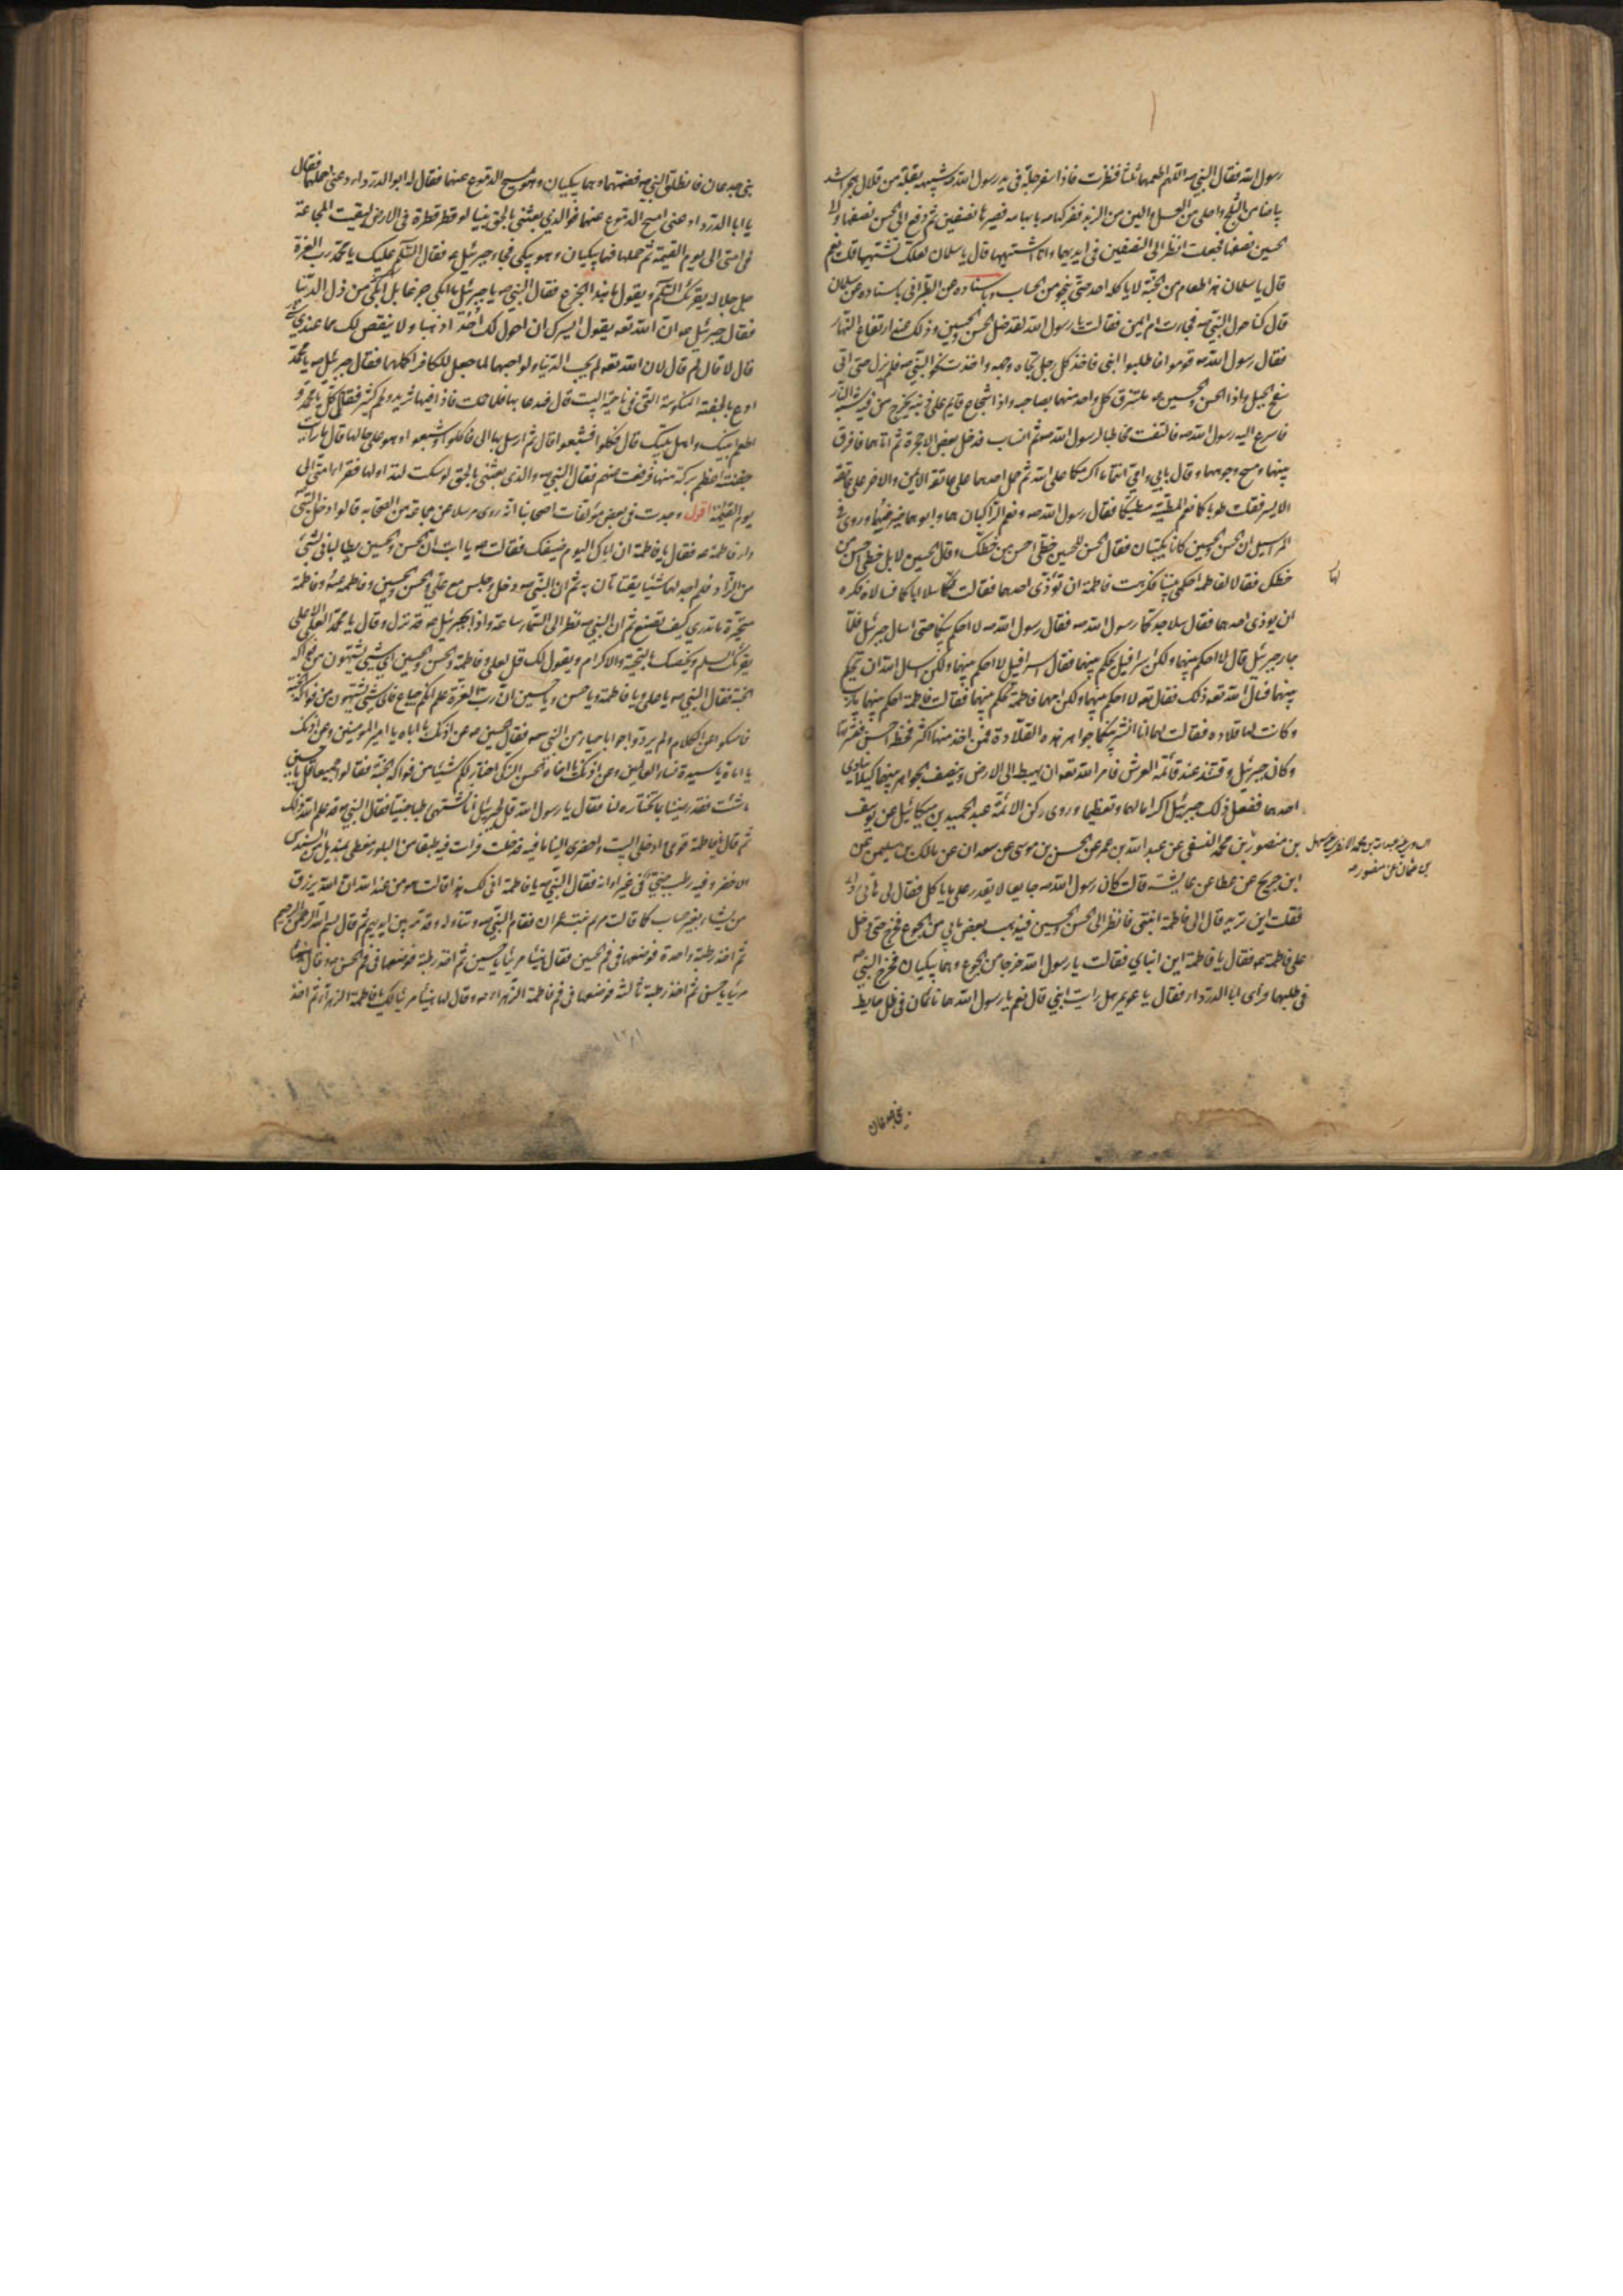 رسول الله فقال النبي ص اللهم اطعمها ثلثا فنظرت فاذا سفرجلة في يد رسول الله ص شبيهة بقلة من قلال هجر اشد
بياضا من الثلج واحلى من العسل والين من الزبد ففركها ص بابهامه فصيرها نصفين ثم دفع الى الحسن نصفها والى
الحسين نصفها فجعلت انظر الى النصفين في ايديهما وانا اشتهيها قال يا سلمان لعلك تشتهيها قلت نعم
قال يا سلمان هذا طعام من الجنة لا ياكله احد حتى ينجو من الحساب وباسناده عن الطبراني باسناده عن سلمان
قال كنا حول النبي ص فجاءت ام ايمن فقالت يا رسول الله لقد ضل الحسن والحسين وذلك عند ارتفاع النهار
فقال رسول الله ص قوموا فاطلبوا ابني فاخذ كل رجل تجاه وجهه واخذت نحو النبي ص فلم يزل حتى اتى
سفح الجبل واذا الحسن والحسين ع ملتزق كل واحد منهما بصاحبه واذا شجاع قايم على ذنبه يخرج من فيه شبه النار
فاسرع اليه رسول الله ص فالتفت مخاطبا لرسول الله ص ثم انساب فدخل بعض الاحجرة ثم اتاهما فافرق
بينهما ومسح وجوههما وقال بابي وامي انتما ما اكرمكما على الله ثم حمل احدهما على عاتقه الايمن والاخر على عاتقه
الايسر فقلت طوبا كما نعم المطية مطيتكما فقال رسول الله ص ونعم الراكبان هما وابوهما خير منهما وروي في
المراسيل ان الحسن والحسين كانا يكتبان فقال الحسن للحسين خطي احسن من خطك وقال الحسين لا بل خطي احسن من
خطك فقالا لفاطمة احكمي بيننا فكرهت فاطمة ان تؤذي احدهما فقالت لهما سلا اباكما فسالاه فكره
ان يؤذي احدهما فقال سلا جدكما رسول الله ص فقال رسول الله ص لا احكم بينكما حتى اسال جبرئيل فلما
جاء جبرئيل قال لا احكم بينهما ولكن اسرافيل يحكم بينهما فقال اسرافيل لا احكم بينهما ولكن اسال الله ان يحكم
بينهما فسال الله تعه ذلك فقال تعه لا احكم بينهما ولكن امهما فاطمة تحكم بينهما فقالت فاطمة احكم بينهما يا رب
وكانت لها قلادة فقالت لهما انا انشر بينكما جواهر هذه القلادة فمن اخذ منها اكثر فخطه احسن فنشرتها
وكان جبرئيل وقتئذ عند قائمة العرش فامر الله تعه ان يهبط الى الارض وينصف الجواهر بينهما كيلا يتاذى
احدهما ففعل ذلك جبرئيل اكراما لهما وتعظيما وروى ركن الائمة عبد الحميد بن ميكائيل عن يوسف
بن منصور بن محمد النسفي عن عبد الله بن عمر عن الحسن بن موسى عن سعدان عن مالك بن سليمن عن
ابن جريح عن عطا عن عايشة قالت كان رسول الله ص جايعا لا يقدر على ما ياكل فقال لي هاتي رداي
فقلت اين تريد قال الى فاطمة ابنتي فانظر الى الحسن والحسين فيذهب بعض ما بي من الجوع فخرج حتى دخل
على فاطمة ع فقال يا فاطمة اين ابناي فقالت يا رسول الله خرجا من الجوع وهما يبكيان فخرج النبي ص
في طلبهما فراى ابا الدرداء فقال يا عويمر هل رايت ابني قال نعم يا رسول الله هما نائمان في ظل حايط
لها
بني جدعان
بني جدعان فانطلق النبي ص فضمهما وهما يبكيان وهو يمسح الدموع عنهما فقال له ابو الدرداء دعني احملهما فقال
يا ابا الدرداء دعني امسح الدموع عنهما فوالذي بعثني بالحق نبيا لو قطر قطرة في الارض لبقيت المجاعة
في امتي الى يوم القيمة ثم حملهما وهما يبكيان وهو يبكي فجاء جبرئيل ع فقال السلام عليك يا محمد رب العزة
جل جلاله يقرئك السلام ويقول ما هذا الجزع فقال النبي ص يا جبرئيل ما ابكي جزعا بل ابكي من ذل الدنيا
فقال جبرئيل ص ان الله تعه يقول ايسرك ان احول لك احدا ذهبا ولا ينقص لك مما عندي شيء
قال لا قال لم قال لان الله تعه لم يحب الدنيا ولو احبها لما جعل للكافر اكلها فقال جبرئيل ص يا محمد
ادع بالجفنة المنكوسة التي في ناحية البيت قال فدعا بها فلما حملت فاذا فيها ثريد ولحم كثير فقال كل يا محمد و
اطعم ابنيك واهل بيتك قال فاكلوا فشبعوا قال ثم ارسل بها الي فاكلوا وشبعوا وهو على حالها قال ما رايت
جفنة اعظم بركة منها فرفعت عنهم فقال النبي ص والذي بعثني بالحق لو سكت لتداولها فقراء امتي الى
يوم القيمة اقول وجدت في بعض مؤلفات اصحابنا انه روى مرسلا عن جماعة من الصحابة قالوا دخل النبي ص
دار فاطمة ع فقال يا فاطمة ان اباك اليوم ضيفك فقالت ع يا ابت ان الحسن والحسين يطالباني بشئ
من الزاد فلم اجد لهما شيئا يقتاتان به ثم ان النبي ص دخل وجلس مع علي والحسن والحسين وفاطمة ع وفاطمة
متحيرة ما تدري كيف تصنع ثم ان النبي ص نظر الى السماء ساعة واذا بجبرئيل ع قد نزل وقال يا محمد العلي الاعلى
يقرئك السلم ويخصك بالتحية والاكرام ويقول لك قل لعلي وفاطمة والحسن والحسين اي شئ تشتهون من فواكه
الجنة فقال النبي ص يا علي ويا فاطمة ويا حسن ويا حسين ان رب العزة علم انكم جياع فاي شئ تشتهون من فواكه الجنة
فامسكوا عن الكلام ولم يردوا جوابا حياء من النبي ص فقال الحسين ع عن اذنك يا اباه يا امير المؤمنين وعن اذنك
يا اماه يا سيدة نساء العالمين وعن اذنك يا اخاه الحسن الزكي اختار لكم شيئا من فواكه الجنة فقالوا جميعا قل يا حسين
ما شئت فقد رضينا بما تختاره لنا فقال يا رسول الله قل لجبرئيل انا نشتهي رطبا جنيا فقال النبي ص قد علم الله ذلك
ثم قال يا فاطمة قومي ادخلي البيت واحضري الينا ما فيه فدخلت فرات فيه طبقا من البلور مغطى بمنديل من السندس
الاخضر وفيه رطب جني في غير اوانه فقال النبي ص يا فاطمة انى لك هذا قالت هو من عند الله ان الله يرزق
من يشاء بغير حساب كما قالت مريم بنت عمران فقام النبي ص وتناوله وقدمه بين ايديهم ثم قال بسم الله الرحمن الرحيم
ثم اخذ رطبة واحدة فوضعها في فم الحسين فقال هنيئا مريئا يا حسين ثم اخذ رطبة فوضعها في فم الحسن ع وقال هنيئا
مريئا يا حسن ثم اخذ رطبة ثالثة فوضعها في فم فاطمة الزهراء ع وقال لها هنيئا مريئا لك يا فاطمة الزهراء ثم اخذ